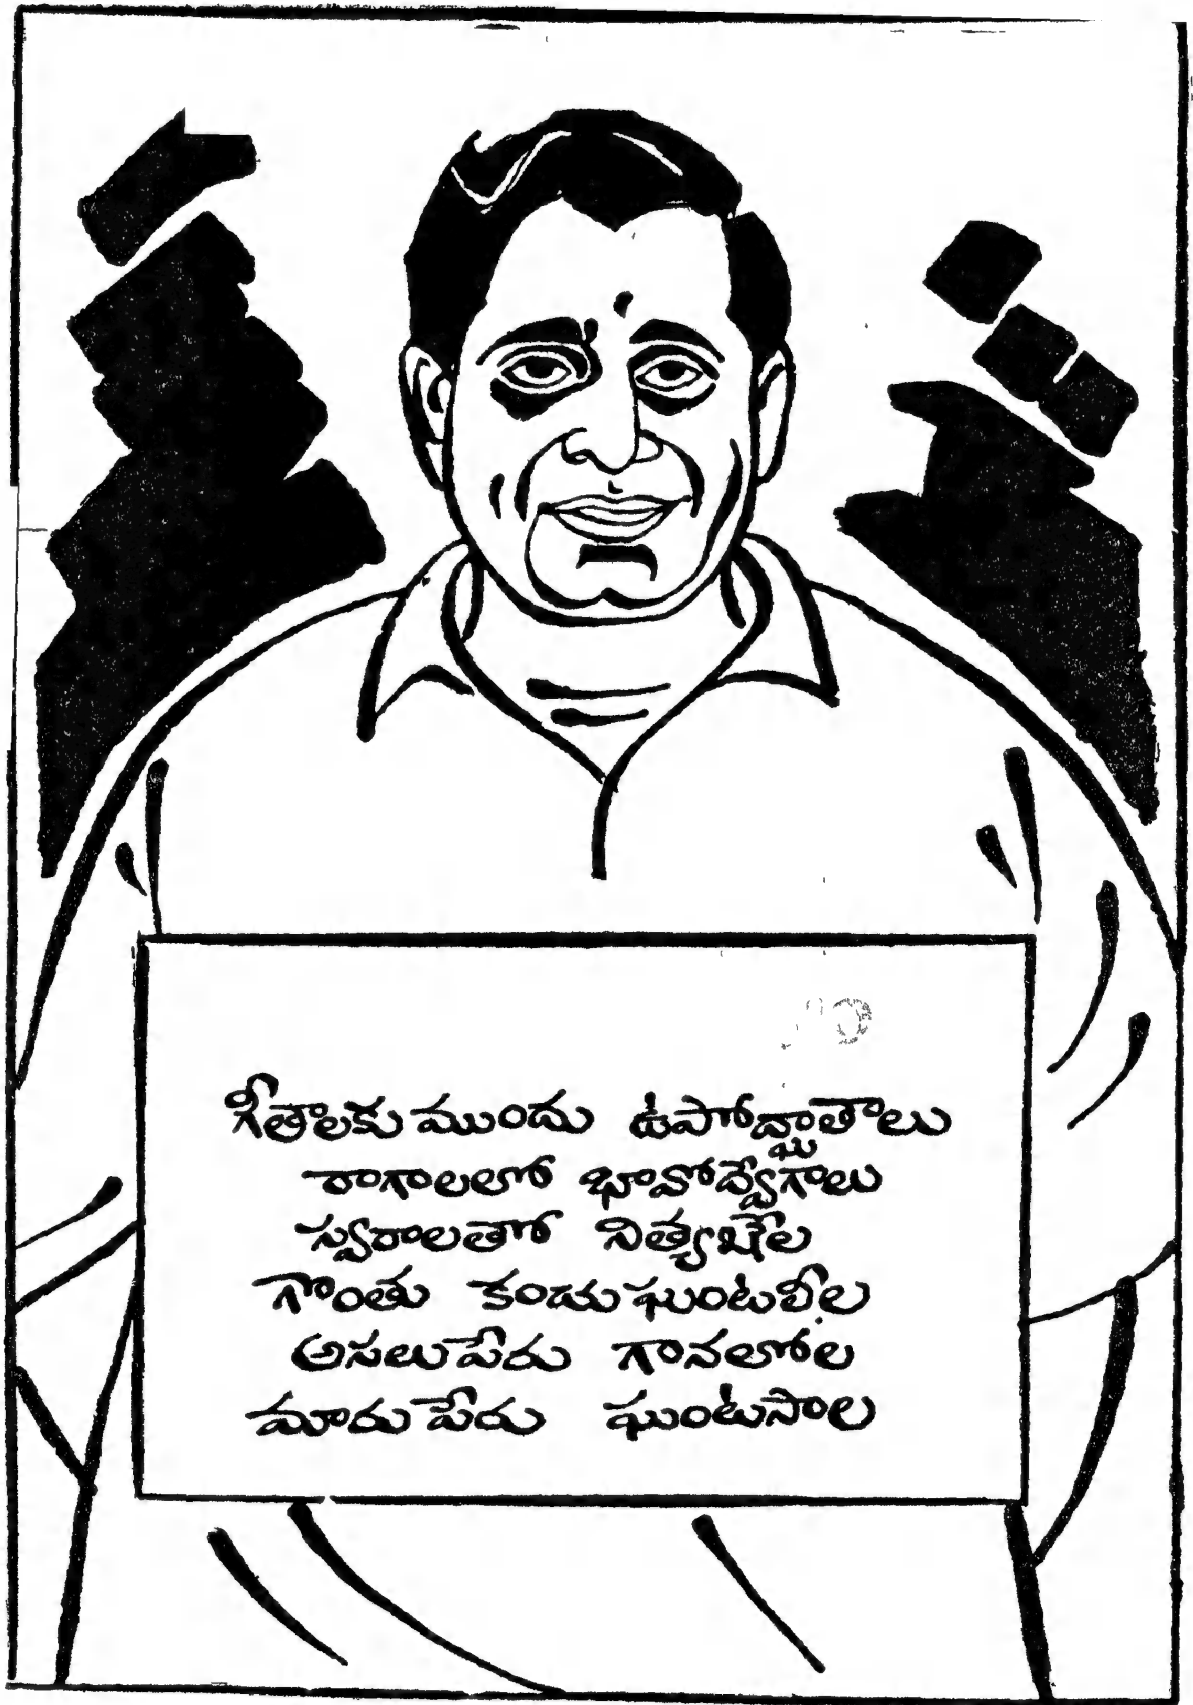 గీతాలకు ముందు ఉపోద్ఘాతాలు
రాగాలలో భావోద్వేగాలు
స్వరాలతో నిత్యఖేల
గొంతు కండు ఘంటలీల
అసలు పేరు గానలోల
మారు పేరు ఘంటసాల